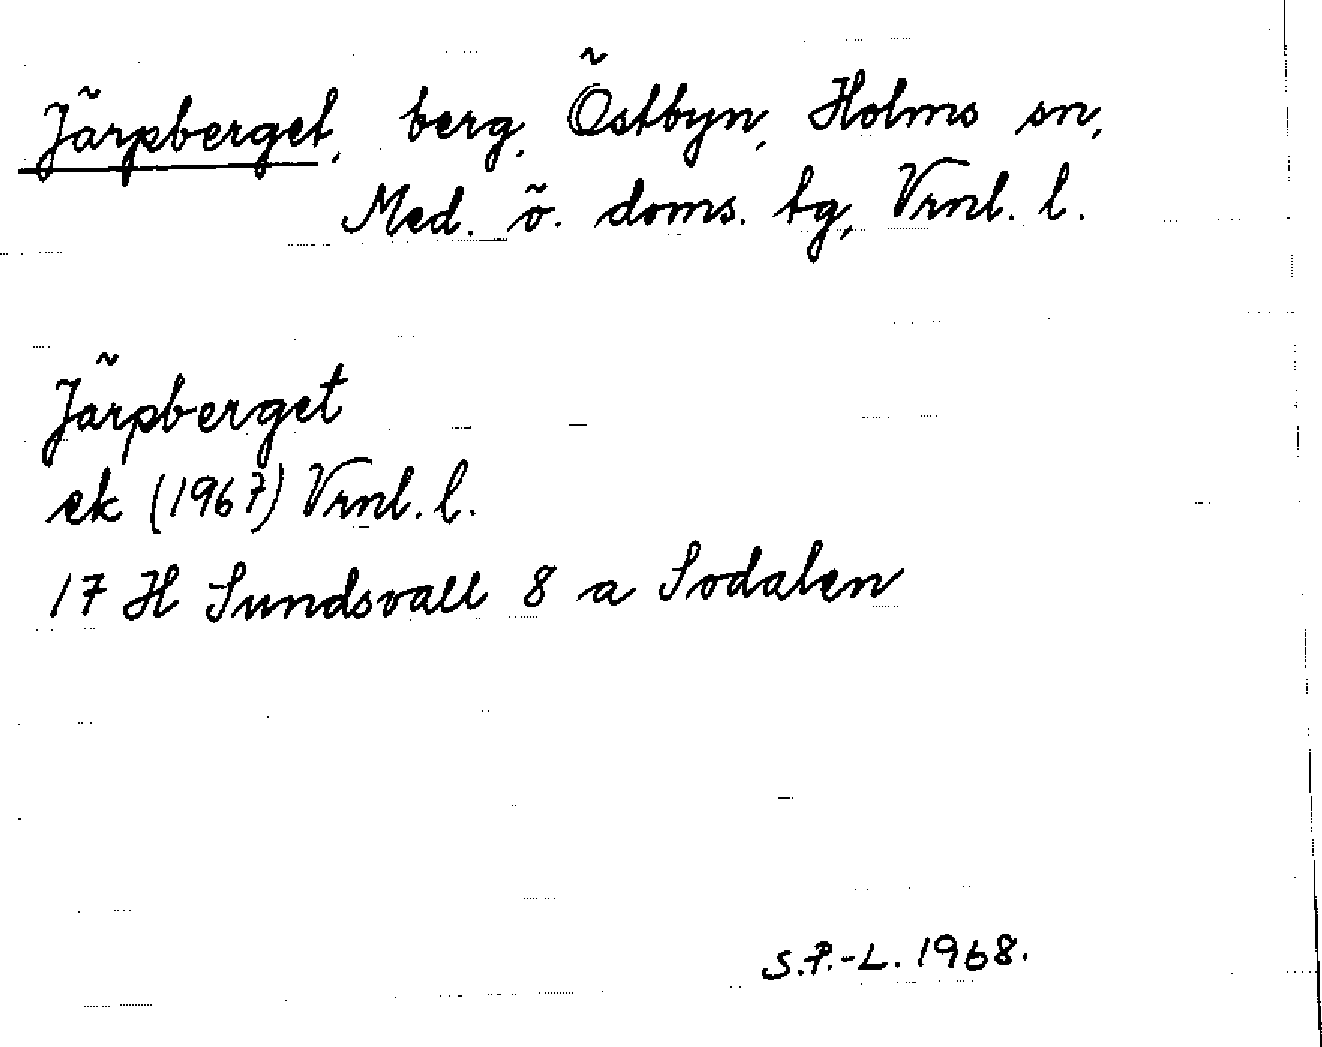 Järpberget, berg, Östbyn, Holms sn,
Med. ö. doms. tg, Vrnl. l.
Järpberget
ek (1967) Vrnl. l.
17 H Sundsvall 8 a Sodalen
S.P.-L. 1968.